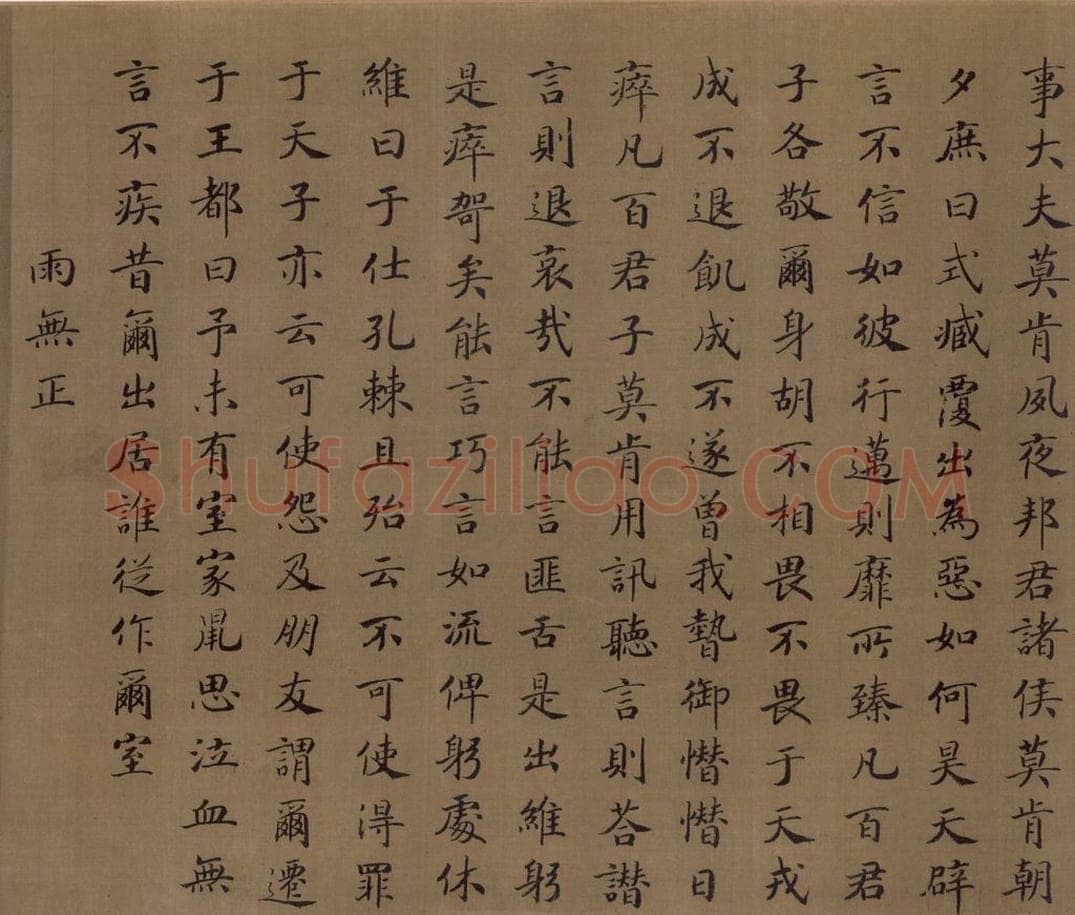 事大夫莫肯夙夜邦君諸侯莫肯朝
夕庶曰式臧覆出為惡如何昊天辟
言不信如彼行邁則靡所臻凡百君
子各敬爾身胡不相畏不畏于天戎
成不退飢成不遂曾我暬御憯憯日
瘁凡百君子莫肯用訊聽言則荅譖
言則退哀哉不能言匪舌是出維躬
是瘁哿矣能言巧言如流俾躬處休
維曰于仕孔棘且殆云不可使得罪
于天子亦云可使怨及朋友謂爾遷
于王都曰予未有室家鼠思泣血無
言不疾昔爾出居誰從作爾室
雨無正
Shufaziliao.COM